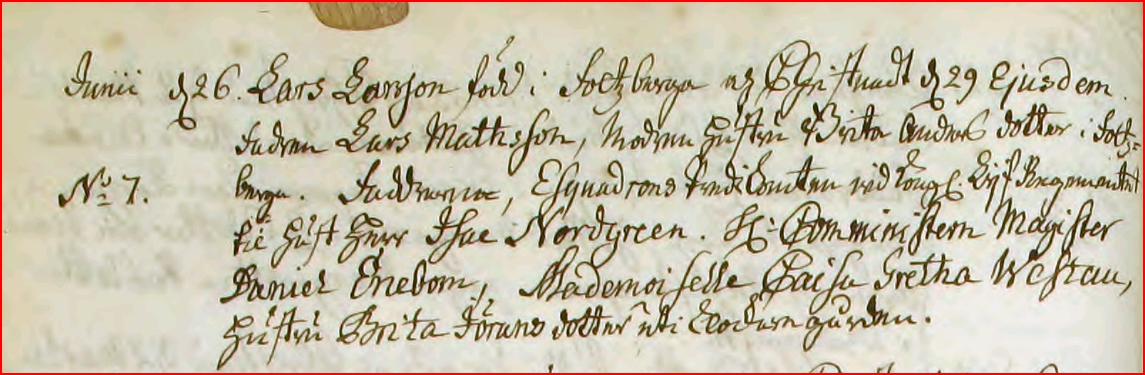 Junii d 26. Lars Larsson född i Foetzberga och Christnadt d 29 Ejusdem.
Fadren Lars Mathsson, Modren Hustru Brita Anders dotter i Foetz-
N:o 7. berga. Faddrarne, Esquadrons Predikanten vid Kongl. Lijf Regementet
til Häst Herr Isac Nordgreen. H: Comministern Magister
Daniel Enebom, Mademoiselle Caisa Gretha Westau,
Hustru Brita Jörans dotter uti